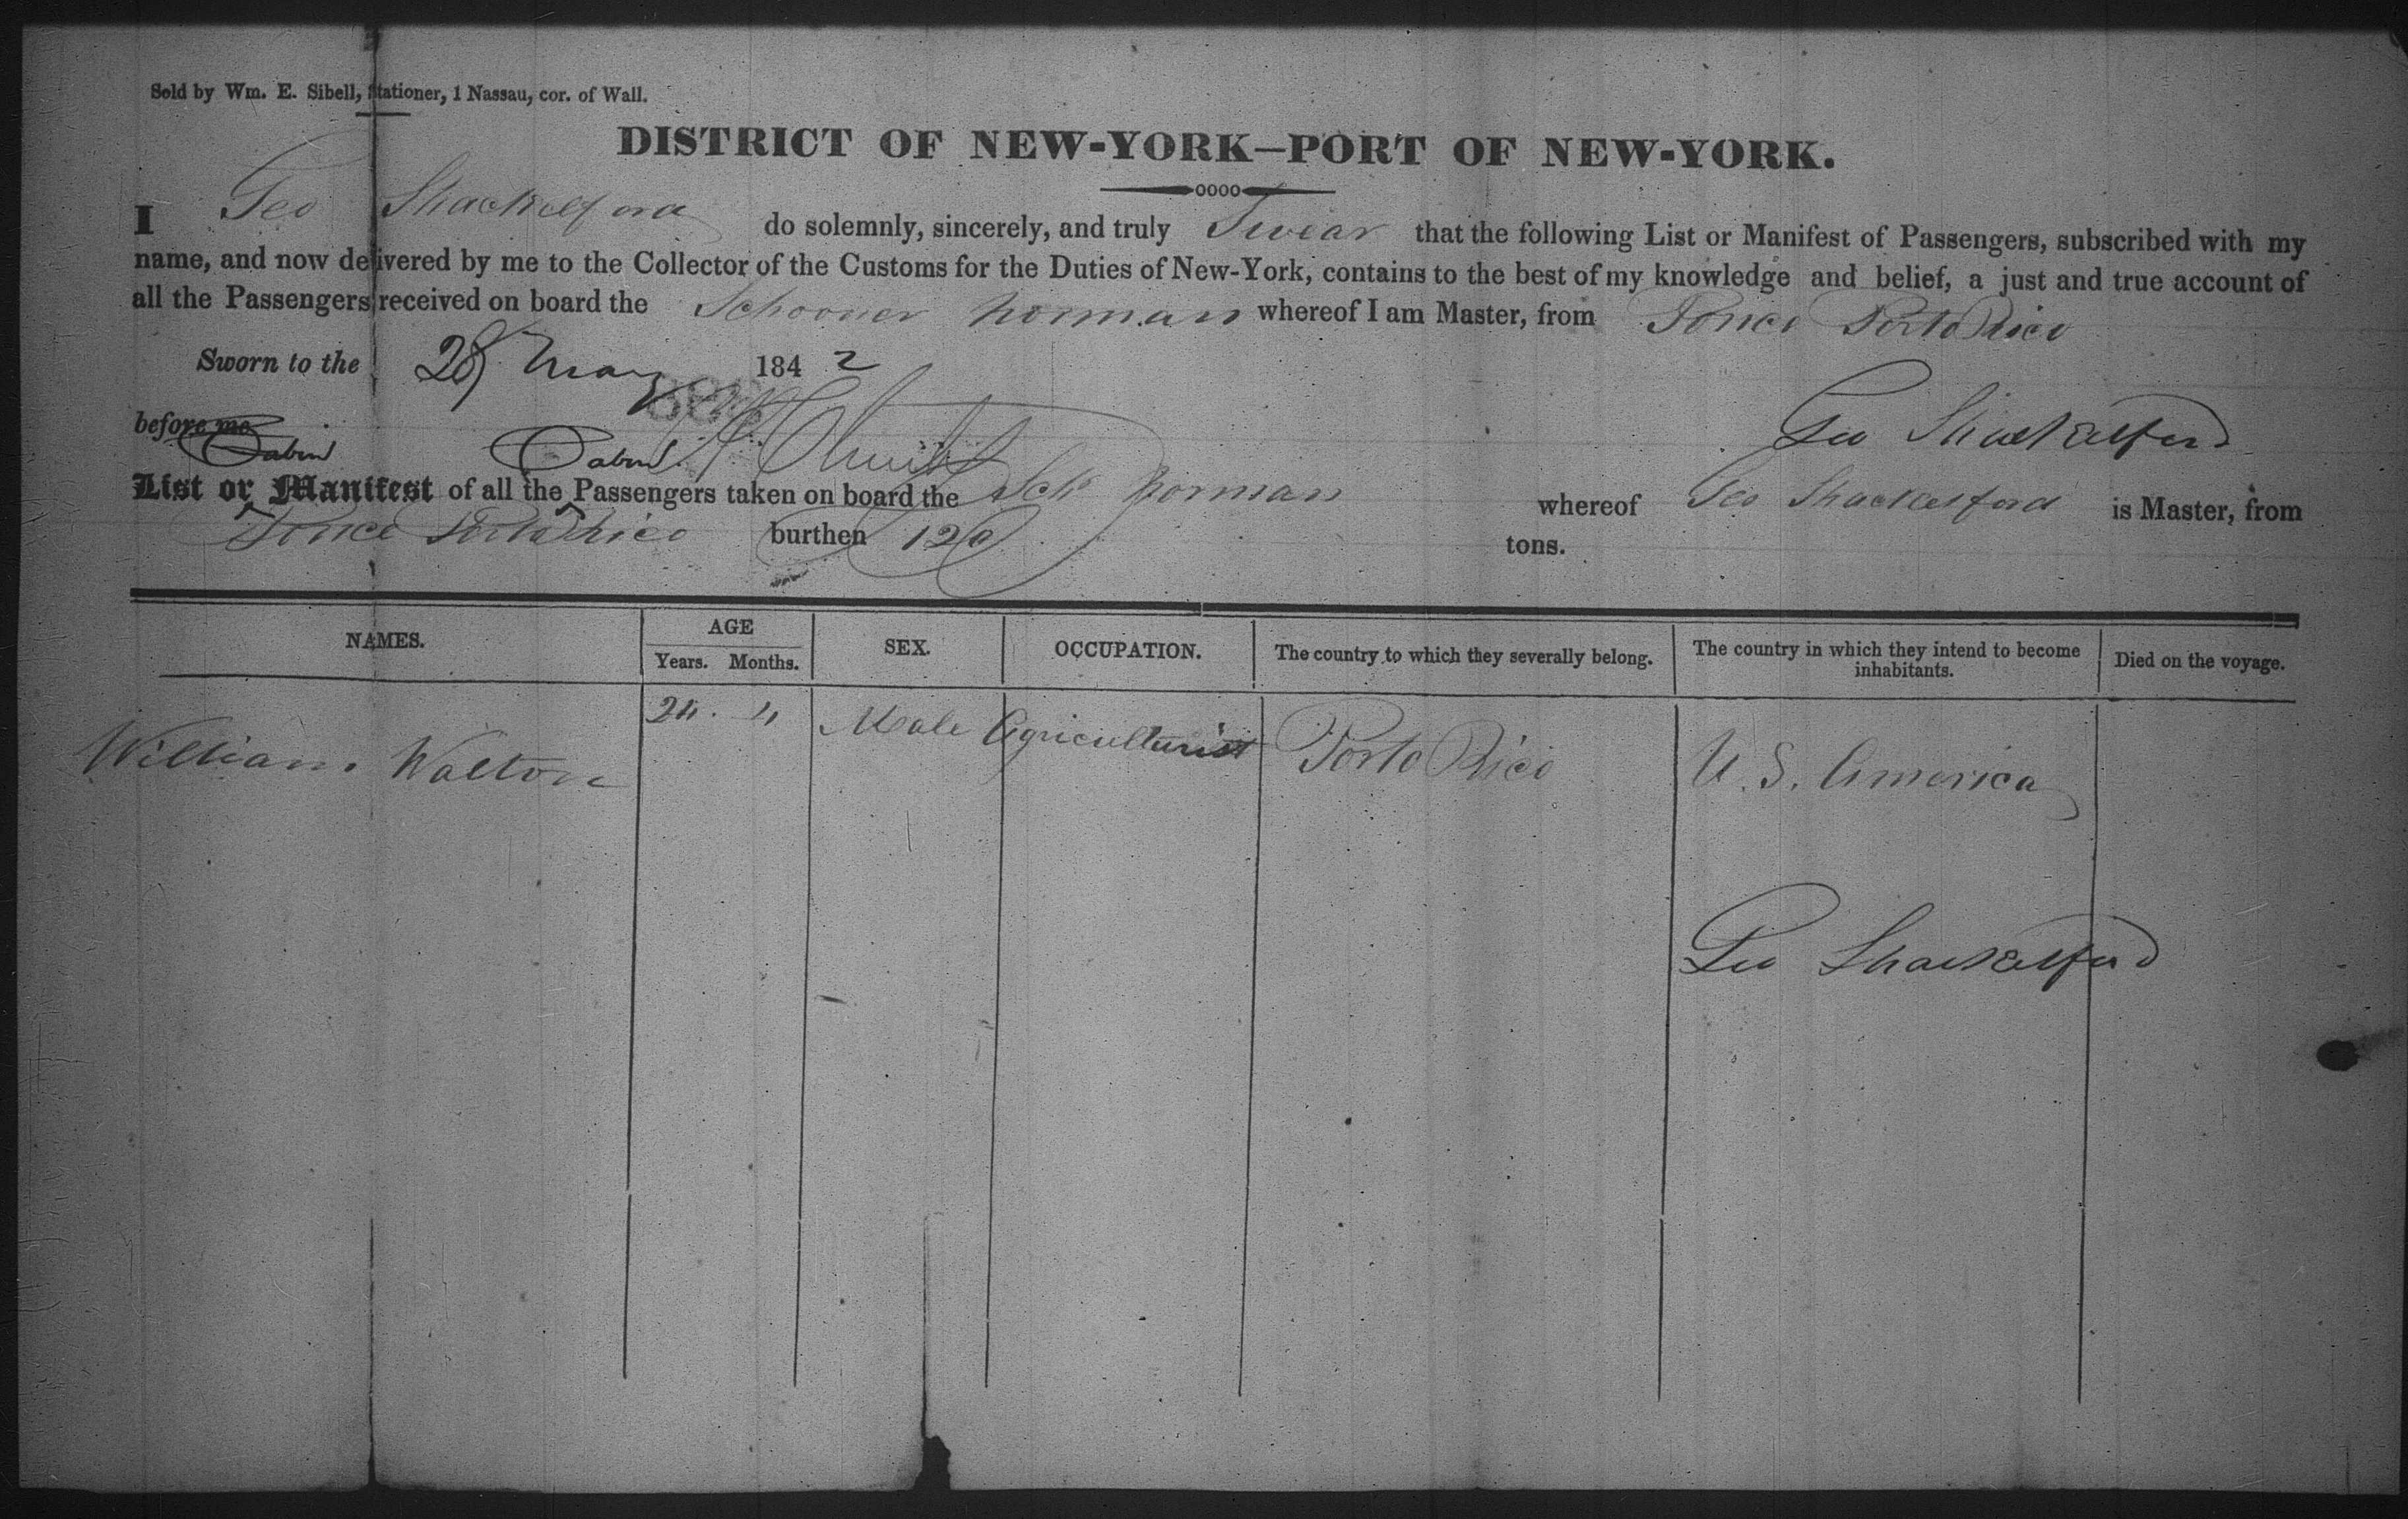 Sold by Wm. E. Sibell, Stationer, 1 Nassau, cor. of Wall.
DISTRICT OF NEW-YORK—PORT OF NEW-YORK.
I Geo Shackelford do solemnly, sincerely, and truly Swear that the following List or Manifest of Passengers, subscribed with my
name, and now delivered by me to the Collector of the Customs for the Duties of New-York, contains to the best of my knowledge and belief, a just and true account of
all the Passengers received on board the Schooner Norman whereof I am Master, from Ponce Porto Rico
Sworn to the 28 May 1842
before me
Geo Shackelford
Cabin Cabin
List or Manifest of all the Passengers taken on board the Schr Norman whereof Geo Shackelford is Master, from
Ponce Porto Rico burthen 120 tons.
NAMES. AGE Years. Months. SEX. OCCUPATION. The country to which they severally belong. The country in which they intend to become inhabitants. Died on the voyage.
William Walton 24. 4 Male Agriculturist Porto Rico U.S. America
Geo Shackelford